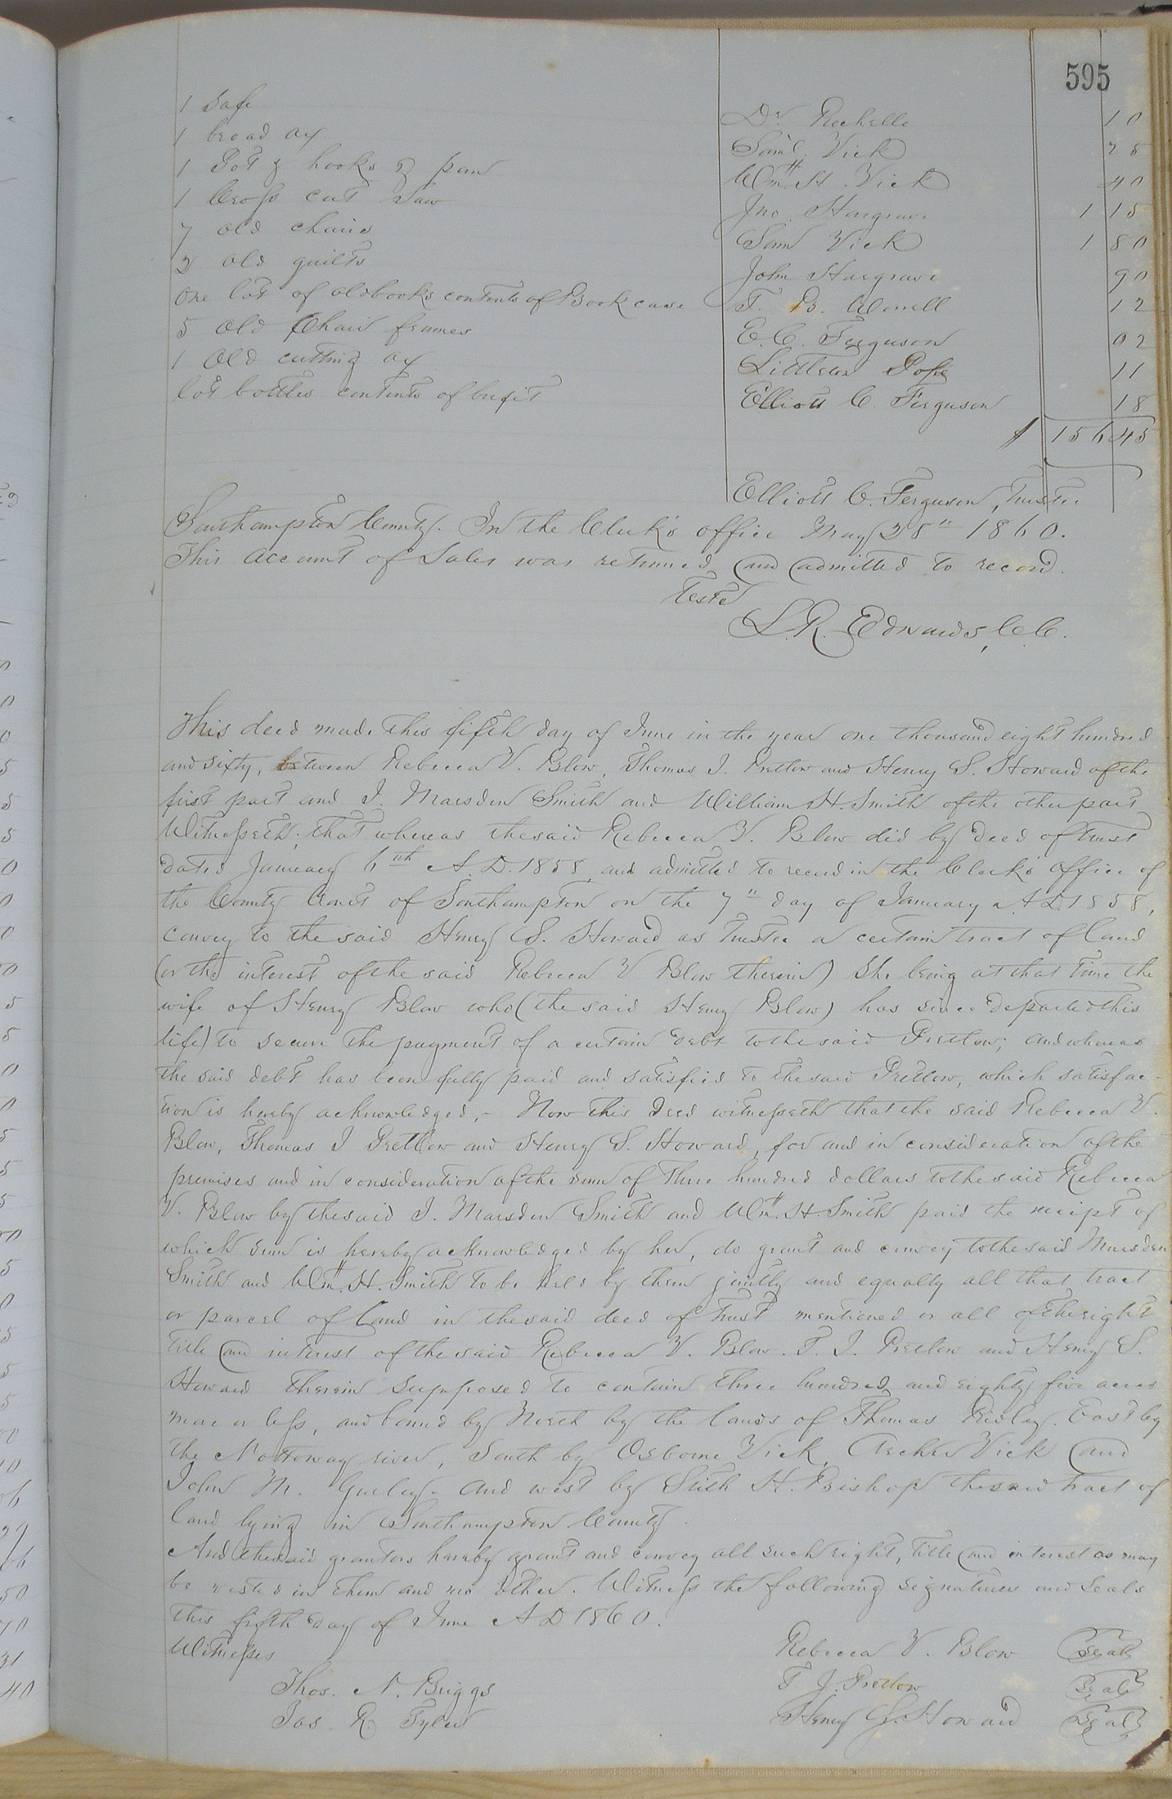 595
1 Safe Dr Rochelle 10
1 broad ax Saml Vick 25
1 Pot & hooks & pan Wm H. Vick 40
1 Cross cut Saw Jno. Hargrave 1 15
7 old chairs Sam Vick 1 80
2 old quilts John Hargrave 90
One lot of old books contents of Book case T. B. Worrell 12
5 Old Chair frames E. C. Ferguson 02
1 Old cutting ax Littleton Pope 11
lot bottles contents of Elliott C. Ferguson 18
$ 156 45
Elliott C. Ferguson, Trustee
Southampton County. In the Clerk's office May 28th 1860.
This Account of Sales was returned and admitted to record.
Teste
L. R. Edwards, C.C.
This deed made this fifth day of June in the year one thousand eight hundred
and sixty, between Rebecca V. Blow, Thomas J. Pretlow and Henry S. Howard of the
first part and J. Marsden Smith and William H. Smith of the other part
Witnesseth; that whereas the said Rebecca V. Blow did by deed of trust
dated January 6th A.D. 1858, and admitted to record in the Clerk's Office of
the County Court of Southampton on the 7th day of January A.D. 1858,
convey to the said Henry S. Howard as Trustee a certain tract of land
(or the interest of the said Rebecca V Blow therein) She being at that time the
wife of Henry Blow who (the said Henry Blow) has since departed this
life) to secure the payment of a certain debt to the said Pretlow; and whereas
the said debt has been fully paid and satisfied to the said Pretlow, which satisfac-
tion is hereby acknowledged,- Now this Deed witnesseth that the said Rebecca V.
Blow, Thomas J Pretlow and Henry S. Howard, for and in consideration of the
premises and in consideration of the sum of Three hundred dollars to the said Rebecca
V. Blow by the said J. Marsden Smith and Wm. H. Smith paid the receipt of
which sum is hereby acknowledged by her, do grant and convey to the said Marsden
Smith and Wm. H. Smith to be held by them jointly and equally all that tract
or parcel of land in the said deed of trust mentioned or all of the right
title and interest of the said Rebecca V. Blow. T. J. Pretlow and Henry S.
Howard therein supposed to contain three hundred and eighty five acres
more or less, and bound by North by the lands of Thomas Ridley. East by
the Nottoway river, South by Osborne Vick, Archer Vick and
John M. Gurley. And west by Stith H. Bishop the said tract of
land lying in Southampton County.
And the said grantors hereby grant and convey all such right, title and interest as may
be vested in them and no other. Witness the following signatures and seals
this fifth day of June A D 1860.
Witnesses Rebecca V. Blow Seal
Thos. N. Briggs T J. Pretlow Seal
Jas. R. Tyler Henry S. Howard Seal